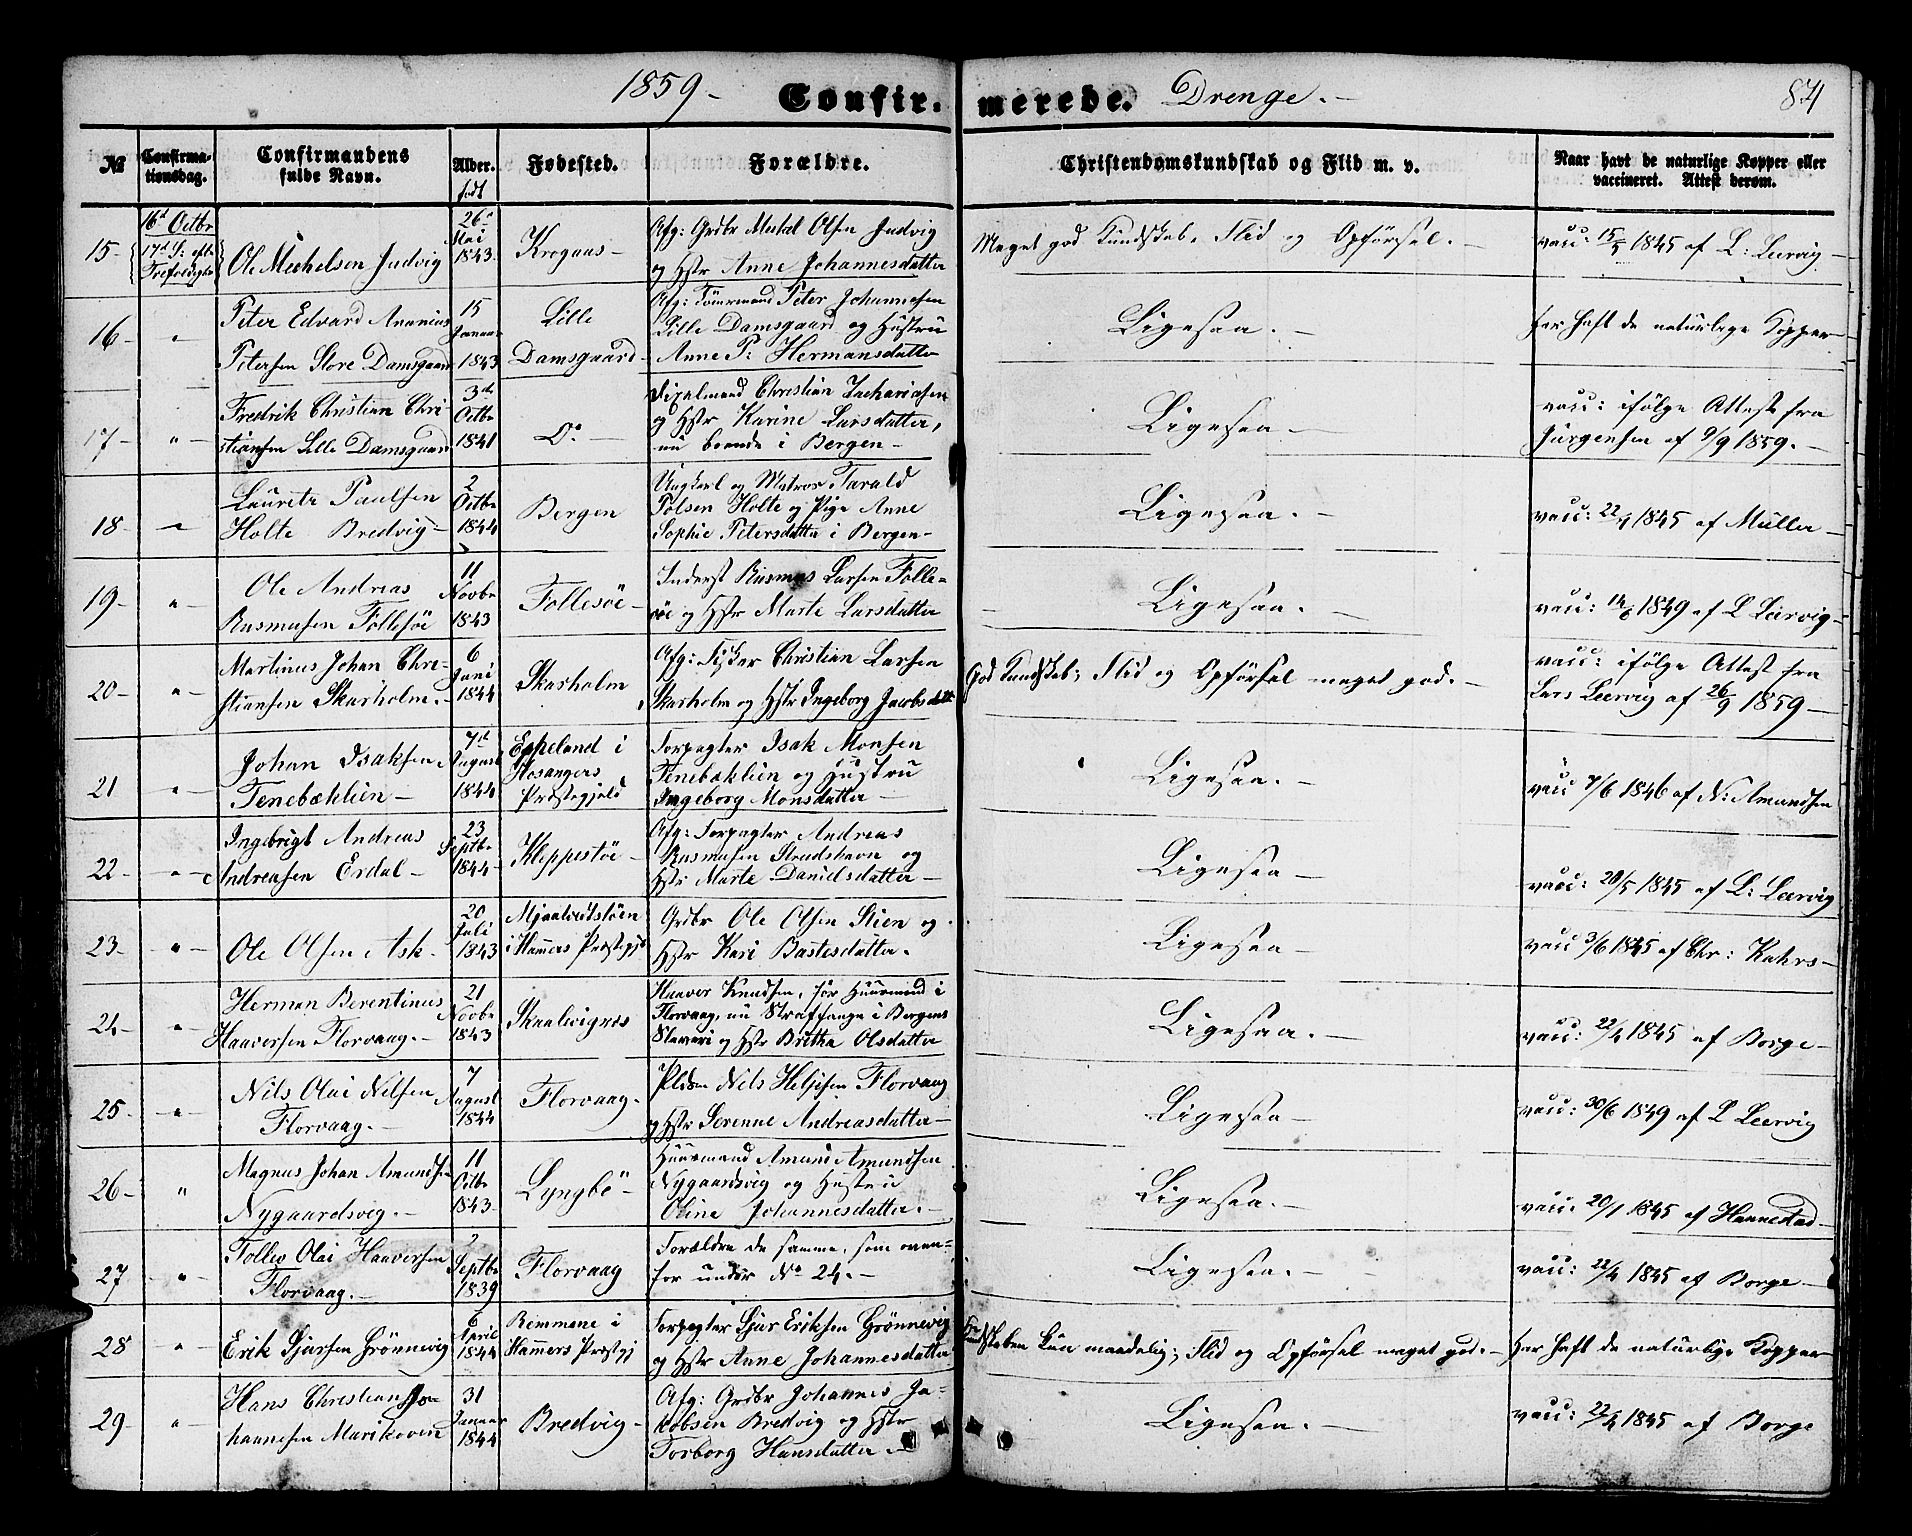 1859 - Confir. merede. Drenge. - 84
№ Confirma-tionsdag. Confirmandens fulde Navn. Alder. født Fødested. Forældre. Christendomskundskab og Flid m. v. Naar havt de naturlige Kopper eller vaccineret. Attest derom.
15- 16d Octbr 17d S: eft: Trefoldighd Ole Mickelsen Judvig 26d Mai 1843- Krogaas- Afg: Grdbr Mickel Olsen Judvig
og Hstr Anne Johannesdatter Meget god Kundskab, Flid og Opførsel. - vacc: 15/5 1845 af L: Leervig-
16 - " - Peter Edvard Ananias
Petersen Store Damsgaard 15 Januar 1843 Lille Damsgaard- Afg: Tømrmand Peter Johannesen
Lille Damsgaard og Hustru
Anne P: Hermansdatter Ligesaa. - har haft de naturlige Kopper
17- " - Fredrik Christian Chri-
stiansen Lille Damsgaard 3die Octbr 1841 Do - Christian Zachariasen
og Hstr Karine Larsdatter,
nu boende i Bergen- Ligesaa - vacc: ifølge Attest fra
Jürgensen af 9/9 1859. -
18- " - Lauritz Paulsen
Holte Bredvig- 2 Octbr 1844 Bergen Ungkarl og Matros Tarald
Polsen Holte og Pige Anne
Sophie Petersdatter i Bergen- Ligesaa. - vacc: 22/4 1845 af Müller-
19- " - Ole Andreas
Rasmusen Follesøe 11 Novbr 1843 Follesöe- Inderst Rasmus Larsen Folle-
söe og Hstr Marte Larsdatter Ligesaa. - vacc: 14/6 1849 af L Leervig-
20- " - Martinus Johan Chri-
stiansen Skarholm. 6 Juni 1844 Skarholm Afg: Fisker Christian Larsen
Skarholm og Hstr Ingeborg Jacobsdatt God Kundskab; Flid og Opførsel meget god. - vacc: ifølge Attest fra
Lars Leervig af 26/9 1859-
21 - " - Johan Isaksen
Tenebæklien- 7d August 1844 Espeland i
Hosangers
Præstegjeld Forpagter Isak Monsen
Tenebæklien og Hustru
Ingeborg Monsdatter - Ligesaa. - vacc 7/6 1846 af N: Amundsen
22- " - Ingebrigt Andreas
Andreasen Erdal- 23 Septbr 1844- Kleppestöe- Afg: Forpagter Andreas
Rasmusen Strudshavn og
Hstr Marte Danielsdatter- Ligesaa - vacc: 20/5 1845 af L: Leervig
23- " - Ole Olsen Ask- 20 Juli 1843
i Hammers Præstegj Grdbr Ole Olsen Stien og
Hstr Kari Bastesdatter. Ligesaa- vacc 3/6 1845 af Chr: Kahrs-
24- " - Herman Berentinus
Haaversen Florvaag. - 21 Novbr 1843 Skaalvignes Haaver Knudsen, før Huusmand i
Florvaag, nu Straffange i Bergens
Slaveri og Hstr Britha Olsdatter Ligesaa. - vacc: 22/4 1845 af Borge-
25- " - Nils Olai Nilsen
Florvaag. - 7 August 1844 Florvaag- Nels Heljesen Florvaag
og Hstr Serenne Andreasdatter- Ligesaa- vacc: 30/6 1849 af L Leervig
26- " Magnus Johan Amundsen
Nygaardsvig. - 11 Octbr 1843- Lyngbö- Huusmand Amund Amundsen
Nygaardsvig og Hustru
Oline Johannesdatter. - Ligesaa. - vacc: 20/1 1845 af Hannestad-
27 - " - Tollev Olai Haaversen
Florvaag. - 2 Septbr 1839 Florvaag Forældre de samme, som oven-
for under No 24. - Ligesaa. - vacc: 22/4 1845 af Borge-
28 - " - Erik Sjursen Grönnevig 6 April 1844 Remmene i
Hammers Præstegj Forpagter Sjur Eriksen Grönnevig
og Hstr Anne Johannesdatter Kundskaben kun maadelig; Flid og Opførsel meget god. - Har haft de naturlige Kopper
29- " - Hans Christian Jo-
hannesen Marikoven 31 Januar 1844 Bredvig- Afg: Grdbr Johannes Ja-
kobsen Bredvig og Hstr
Torborg Hansdatter. - Ligesaa. - vacc: 22/4 1845 af Borge